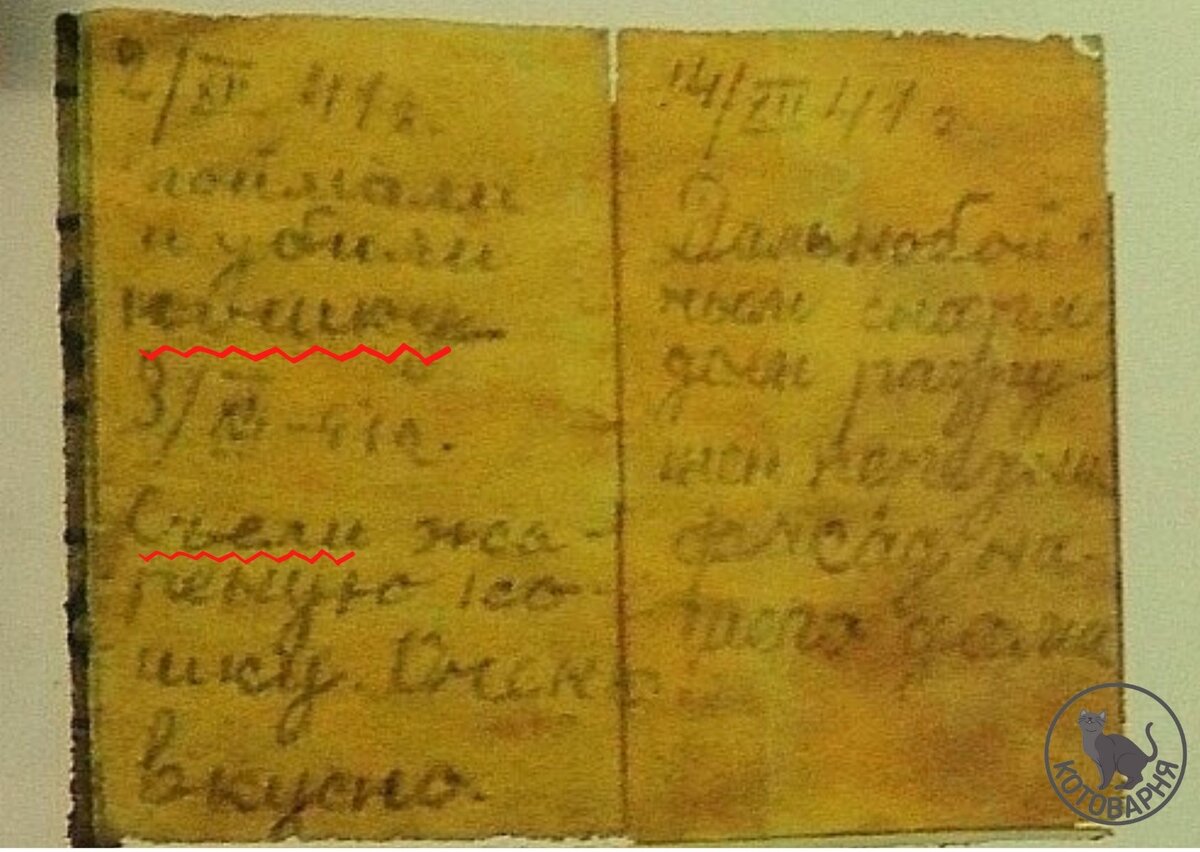 2/XII 41г.
поймали
и убили
кошку
3/XII-41г.
Съели жа-
реную ко-
шку. Очень
вкусно.
14/XII 41г.
Дальнобой
ным снаря
дом разру-
шен
фасад на-
шего дома
КОТОВАРНЯ